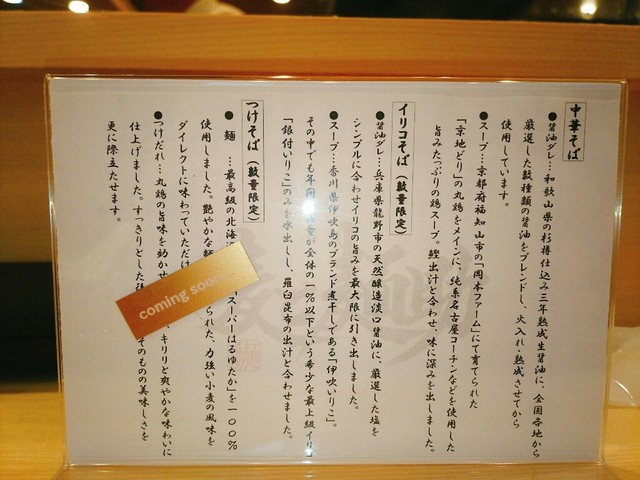 中華そば
●醤油ダレ…和歌山県の杉樽仕込み三年熟成生醤油に、全国各地から
厳選した数種類の醤油をブレンドし、火入れ・熟成させてから
使用しています。
●スープ…京都府福知山市の「岡本ファーム」にて育てられた
「京地どり」の丸鶏をメインに、純系名古屋コーチンなどを使用した
旨みたっぷりの鶏スープ。鰹出汁と合わせ、味に深みを出しました。
イリコそば（数量限定）
●醤油ダレ…兵庫県龍野市の天然醸造淡口醤油に、厳選した塩を
シンプルに合わせイリコの旨みを最大限に引き出しました。
●スープ…香川県伊吹島のブランド煮干しである「伊吹いりこ」。
その中でも年間漁獲量が全体の一％以下という希少な最上級イリコ
「銀付いりこ」のみを水出しし、羅臼昆布の出汁と合わせました。
つけそば（数量限定）
●麺 …最高級の北海道 スーパーはるゆたか」を一〇〇％
使用しました。艶やかな麺 られた、力強い小麦の風味を
ダイレクトに味わっていただけ
●つけだれ…丸鶏の旨味を効かせ 、キリリと爽やかな味わいに
仕上げました。すっきりとした後 そのものの美味しさを
更に際立たせます。
coming soon